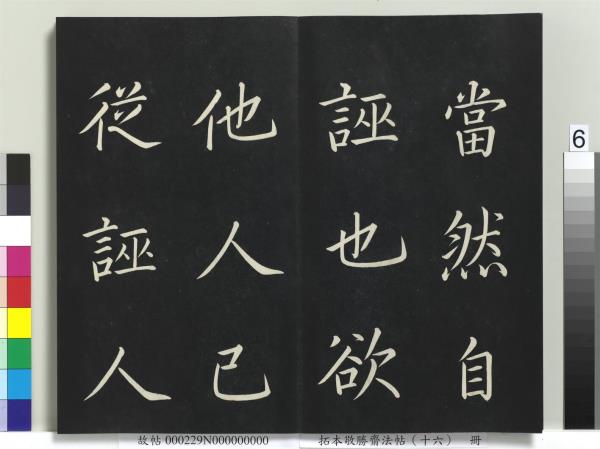 當然自
誣也欲
他人己
從誣人
6
故帖 000229N000000000
拓本敬勝齋法帖（十六） 冊